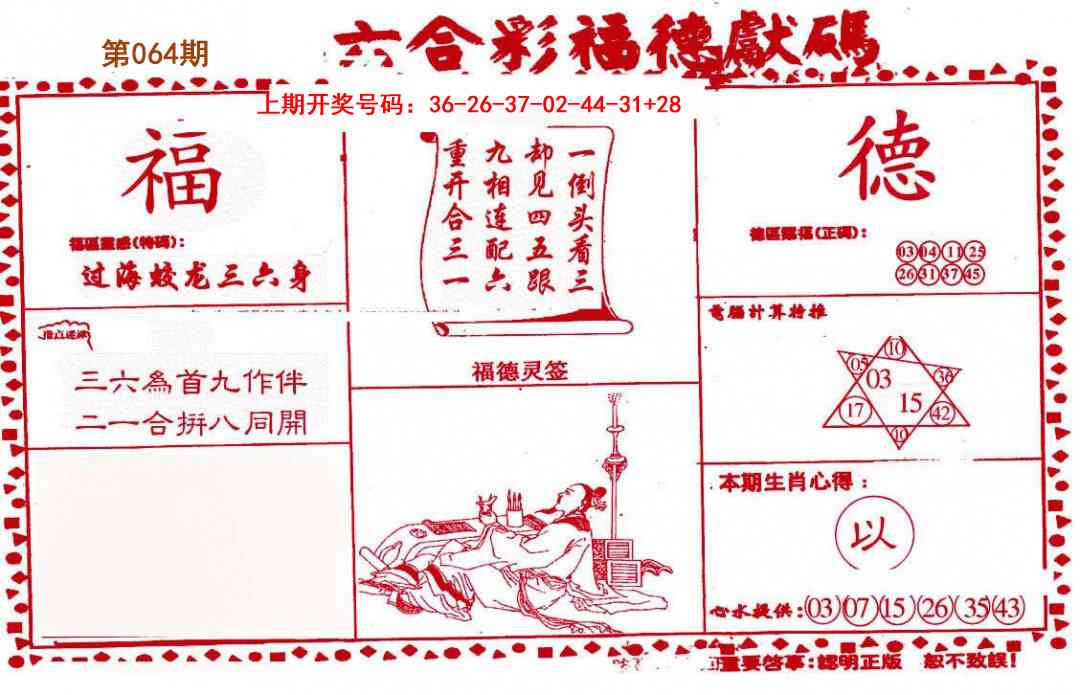 六合彩福德獻碼
第064期
上期开奖号码：36-26-37-02-44-31+28
福
福區靈感(特碼)：
过海蛟龙三六身
三六為首九作伴
二一合拼八同開
一倒头看三
却见四五跟
九相连配六
重开合三一
福德灵签
德
德區靈感(正碼)：
03 04 11 25
26 31 37 45
電腦計算特推
10
05 03 36
17 15 42
10
本期生肖心得：
以
心水提供：(03)(07)(15)(26)(35)(43)
重要啓事：認明正版 恕不致誤！